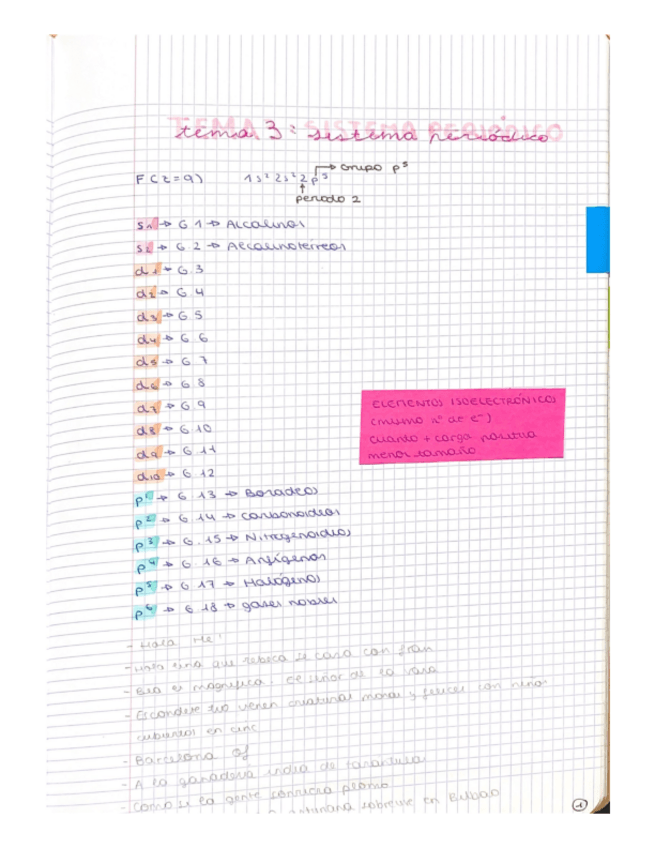 tema 3: sistema periódico
TEMA 3: SISTEMA PERIÓDICO
F (z=9) 1s² 2s² 2p⁵ → Grupo p⁵
periodo 2
s1 → G 1 → Alcalinos
s2 → G 2 → Alcalinotérreos
d1 → G 3
d2 → G 4
d3 → G 5
d4 → G 6
d5 → G 7
d6 → G 8
d7 → G 9
d8 → G 10
d9 → G 11
d10 → G 12
p1 → G 13 → Boradeos
p2 → G 14 → carbonoideos
p3 → G. 15 → Nitrogenoideos
p4 → G. 16 → Anfígenos
p5 → G 17 → Halógenos
p6 → G 18 → gases nobles
ELEMENTOS ISOELECTRÓNICOS
(mismo nº de e⁻)
cuando + carga positiva
menor tamaño
- Hola Me!
- Hasta una que rebeca se casa con fran
- Bea es magnífica. El señor de la vara
- Escondete tio vienen criaturas monas y felices con niños
cubiertos en cinc
- Barcelona Of
- A la ganadora india de tarantula
- Como si la gente comiera plomo
sobrevive en Bilbao
1